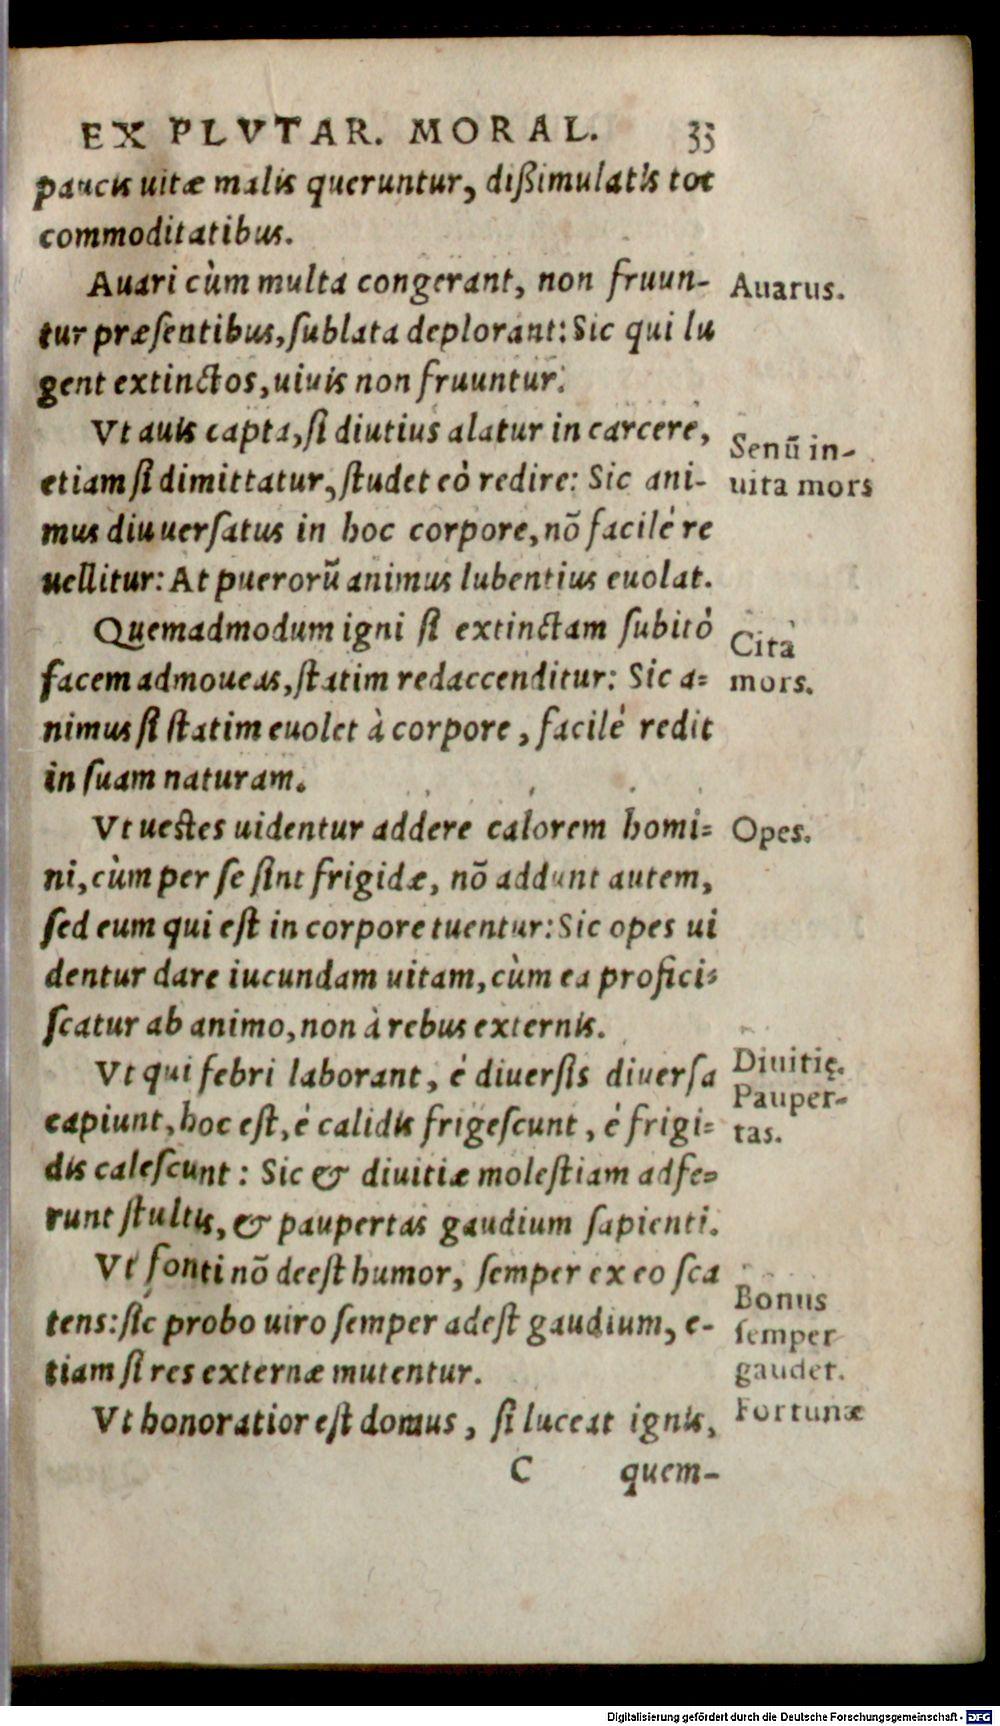 EX PLVTAR. MORAL. 33
paucis uitæ malis queruntur, dißimulatis tot
commoditatibus.
Auari cùm multa congerant, non fruun-
tur præsentibus, sublata deplorant: Sic qui lu
gent extinctos, uiuis non fruuntur.
Avarus.
Vt auis capta, si diutius alatur in carcere,
etiam si dimittatur, studet eò redire: Sic ani-
mus diu uersatus in hoc corpore, nõ facilè re
uellitur: At puerorũ animus lubentius euolat.
Senũ in-
uita mors
Quemadmodum igni si extinctam subitò
facem admoueas, statim redaccenditur: Sic a=
nimus si statim euolet à corpore, facilè redit
in suam naturam.
Cita
mors.
Vt uestes uidentur addere calorem homi=
ni, cùm per se sint frigidæ, nõ addunt autem,
sed eum qui est in corpore tuentur: Sic opes ui
dentur dare iucundam uitam, cùm ea profici=
scatur ab animo, non à rebus externis.
Opes.
Vt qui febri laborant, è diuersis diuersa
capiunt, hoc est, è calidis frigescunt, è frigi=
dis calescunt: Sic & diuitiæ molestiam adfe=
runt stultis, & paupertas gaudium sapienti.
Diuitię.
Pauper-
tas.
Vt fonti nõ deest humor, semper ex eo sca
tens: sic probo uiro semper adest gaudium, e-
tiam si res externæ mutentur.
Bonus
semper
gaudet.
Vt honoratior est domus, si luceat ignis,
Fortunæ
C quem-
Digitalisierung gefördert durch die Deutsche Forschungsgemeinschaft - DFG